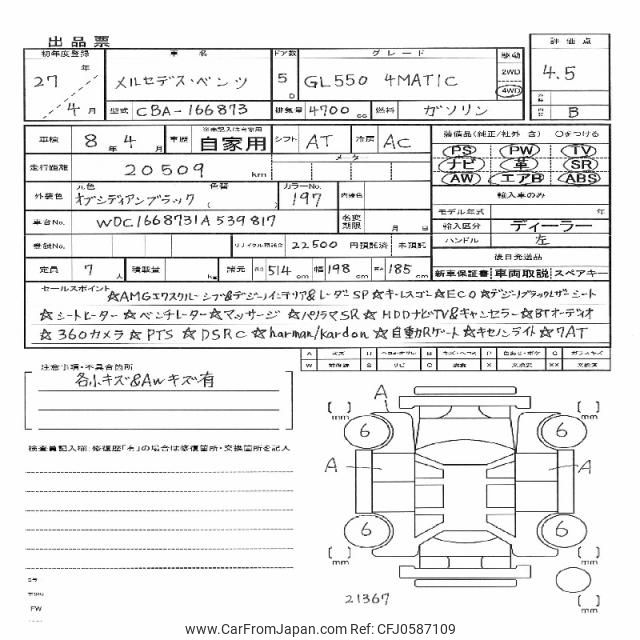 出品票
初年度登録 車名 ドア数 グレード 駆動 評価点
27年 メルセデス・ベンツ 5D GL550 4MATIC 2WD 4WD 4.5
4月 型式 CBA-166873 排気量 4700cc 燃料 ガソリン B
車検 8年4月 車歴 自家用 シフト AT 冷房 AC 装備品(純正/社外 含) ○をつける
PS PW TV
走行距離 20509 km メーター ナビ 革 SR
AW エアB ABS
外装色 元色 オブシディアンブラック 色替 ( ) カラーNo. 197 内装色 輸入車のみ
モデル年式 年
車台No. WDC1668731A539817 名変期限 月 日 輸入区分 ディーラー
ハンドル 左
登録No. リサイクル預託金 22500 円預託済 未預託 後日発送品
定員 7人 積載量 kg 諸元 長さ 514cm 幅 198cm 高さ 185cm 新車保証書 車両取説 スペアキー
セールスポイント ☆AMGエクスクルーシブ&デジーノインテリア&レーダーSP☆キーレスゴー☆ECO☆デジーノブラックレザーシート
☆シートヒーター☆ベンチレーター☆マッサージ ☆パノラマSR☆HDDナビTV&キャンセラー☆BTオーディオ
☆360カメラ☆PTS ☆DSRC ☆harman/kardon ☆自動Rゲート☆キセノンライト☆7AT
注意事項・不具合箇所
各小キズ&AWキズ有
検査員記入欄:修復歴「有」の場合は修復箇所・交換箇所を記入
A
[ ] mm [ ] mm
6 6
A A
6 6
[ ] mm [ ] mm
FW
21367
[ ] mm
www.CarFromJapan.com # CFJ0587109